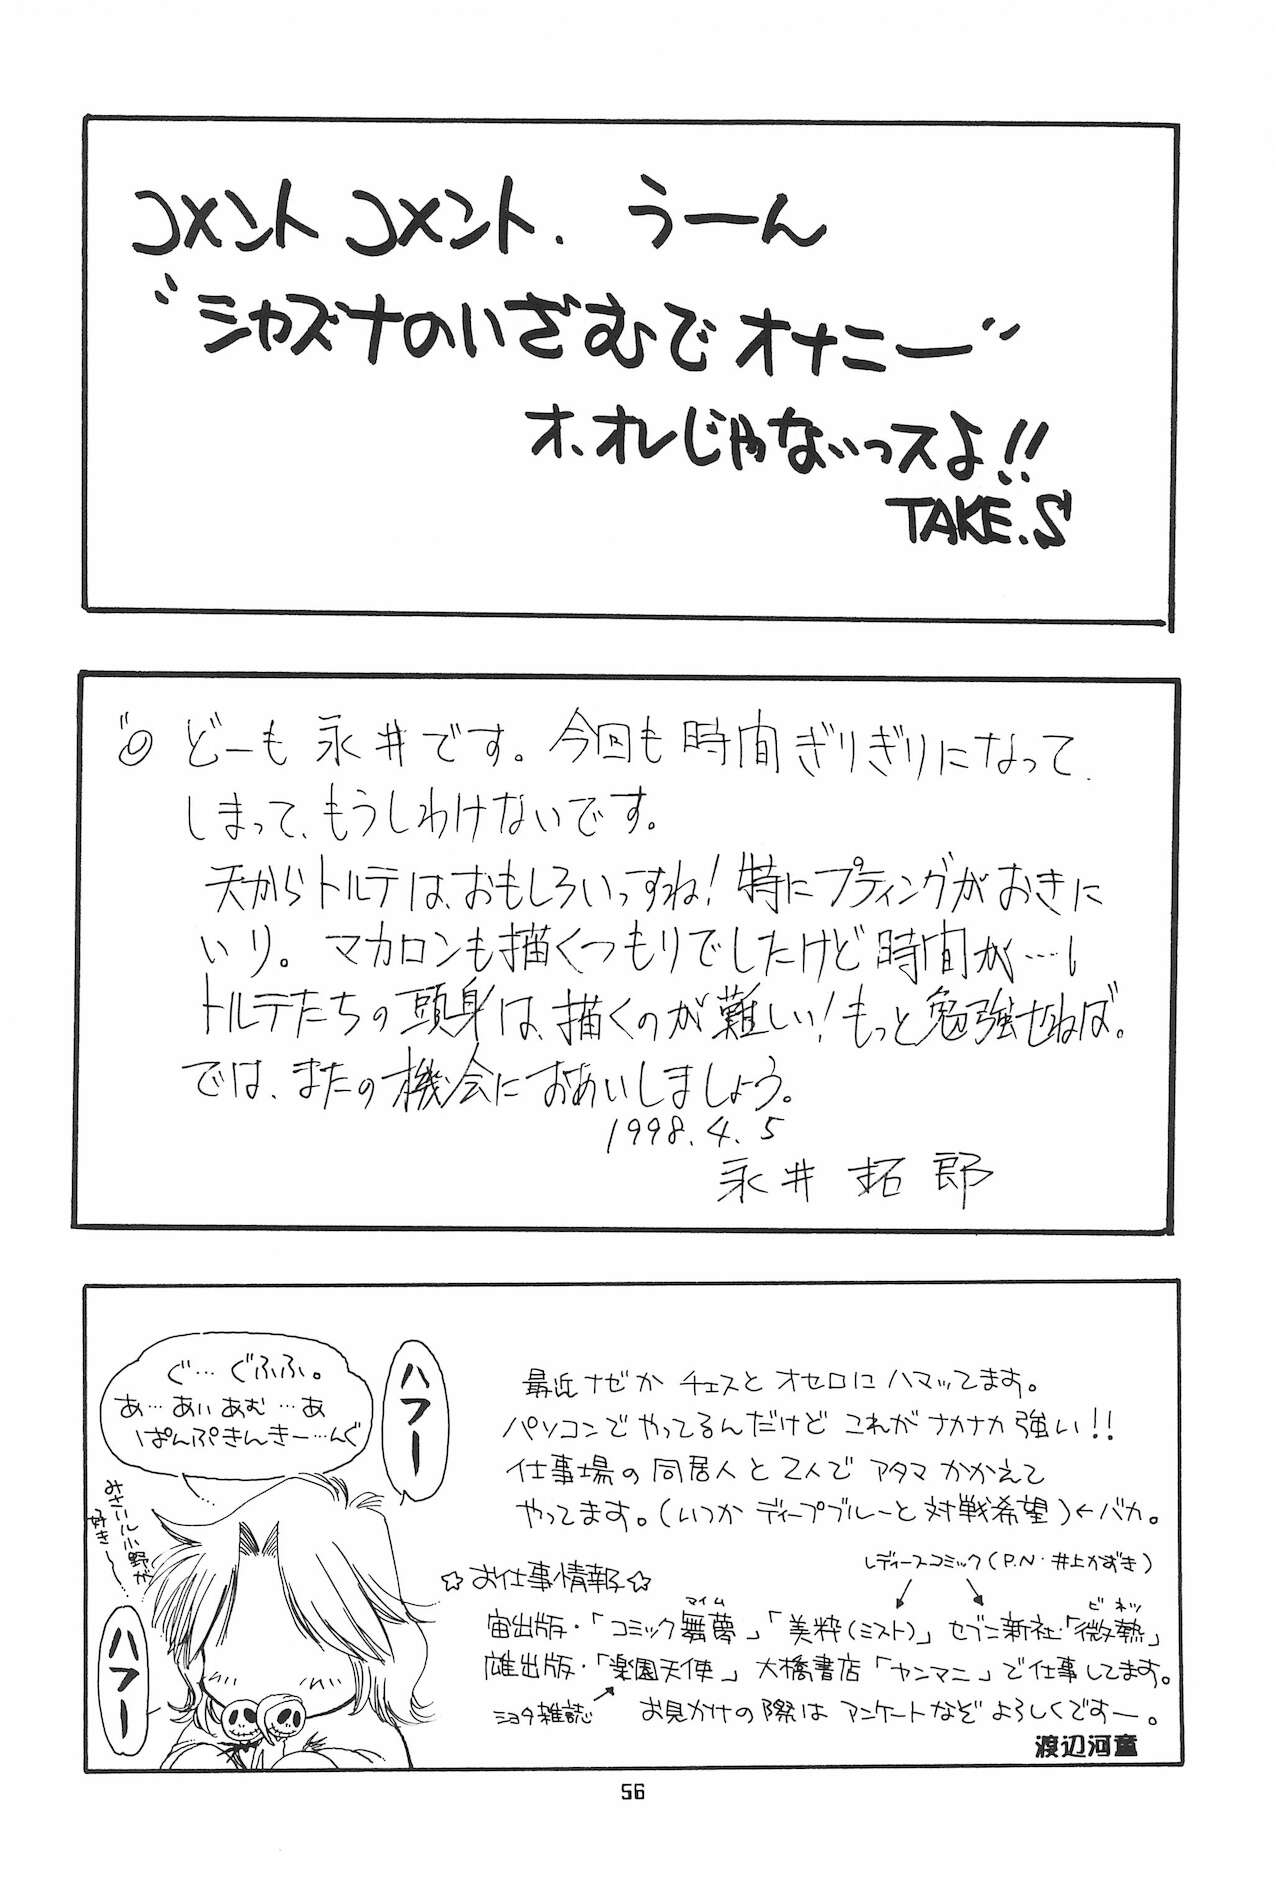 コメントコメント. うーん
"シャズナのいざむでオナニー"
オ、オレじゃないっスよ!!
TAKE.S
どーも永井です。今回も時間ぎりぎりになって
しまって、もうしわけないです。
天からトルテは、おもしろいっすね!特にプティングがおきに
いり。マカロンも描くつもりでしたけど時間が…。
トルテたちの頭身は、描くのが難しい!もっと勉強せねば。
では、またの機会におあいしましょう。
1998.4.5
永井 拓郎
ぐ…ぐふふ。
あ…あいあむ…あ
ぱんぷきんきー…んぐ
ハフー
みさいル小野が
好き〜
ハフー
最近ナゼかチェスとオセロにハマッてます。
パソコンでやってるんだけどこれがナカナカ強い!!
仕事場の同居人と2人でアタマかかえて
やってます。(いつかディープブルーと対戦希望)←バカ。
レディースコミック(P.N.井上かずき)
☆お仕事情報☆
マイム
ビネツ
宙出版・「コミック舞夢」「美粋(ミスト)」セブン新社・「微熱」
雄出版・「楽園天使」大橋書店「ヤンマニ」で仕事してます。
ショタ雑誌
お見かけの際はアンケートなぞよろしくですー。
渡辺河童
56